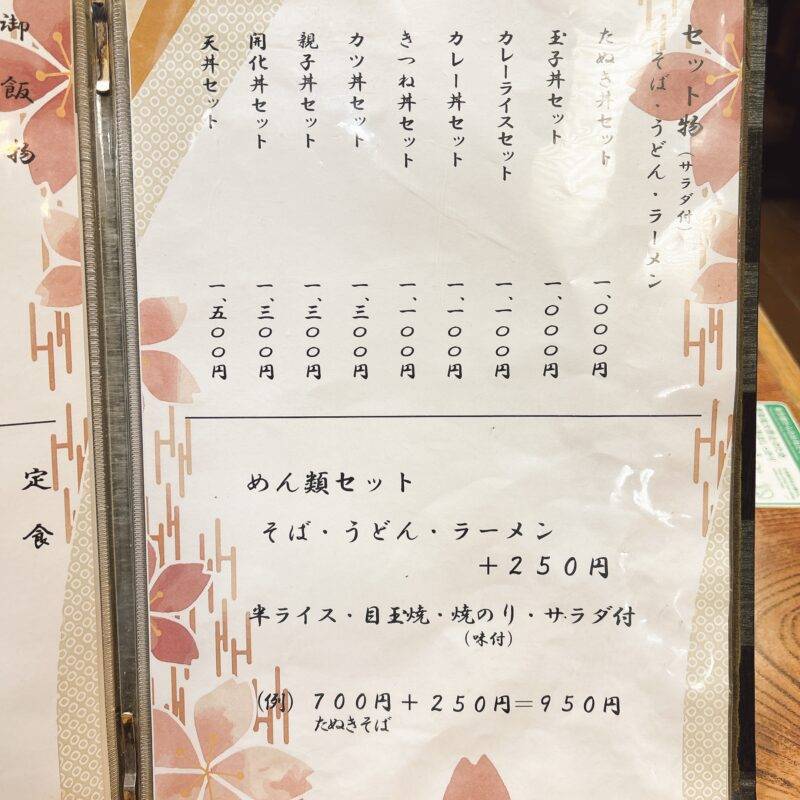 セット物（サラダ付）
そば・うどん・ラーメン
たぬき丼セット 一、〇〇〇円
玉子丼セット 一、〇〇〇円
カレーライスセット 一、一〇〇円
カレー丼セット 一、一〇〇円
きつね丼セット 一、一〇〇円
カツ丼セット 一、三〇〇円
親子丼セット 一、三〇〇円
開化丼セット 一、三〇〇円
天丼セット 一、五〇〇円
めん類セット
そば・うどん・ラーメン
＋２５０円
半ライス・目玉焼・焼のり・サラダ付
（味付）
（例） ７００円＋２５０円＝９５０円
たぬきそば
御飯物
定食